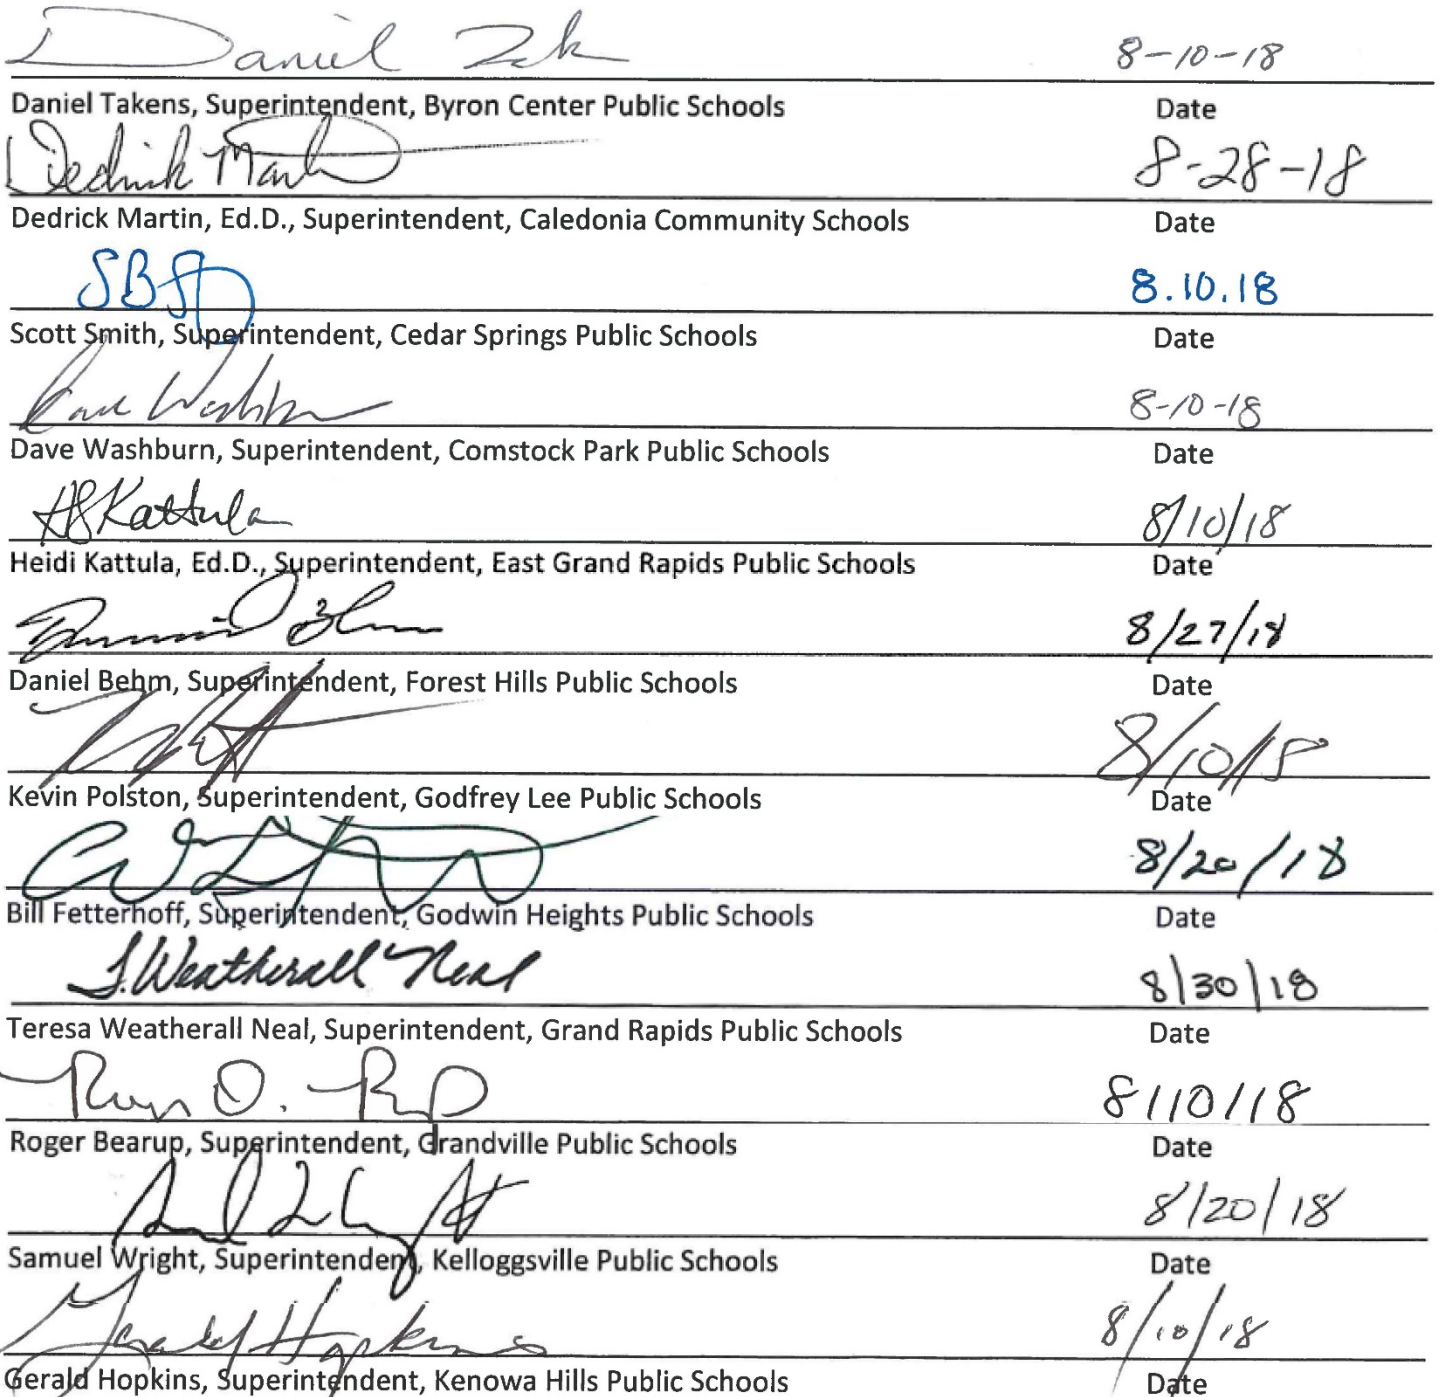 Daniel 8-10-18
Daniel Takens, Superintendent, Byron Center Public Schools Date
Dedrick Martin 8-28-18
Dedrick Martin, Ed.D., Superintendent, Caledonia Community Schools Date
SBS 8.10.18
Scott Smith, Superintendent, Cedar Springs Public Schools Date
Dave Washburn 8-10-18
Dave Washburn, Superintendent, Comstock Park Public Schools Date
HSKattula 8/10/18
Heidi Kattula, Ed.D., Superintendent, East Grand Rapids Public Schools Date
8/27/18
Daniel Behm, Superintendent, Forest Hills Public Schools Date
8/10/18
Kevin Polston, Superintendent, Godfrey Lee Public Schools Date
8/20/18
Bill Fetterhoff, Superintendent, Godwin Heights Public Schools Date
T. Weatherall Neal 8/30/18
Teresa Weatherall Neal, Superintendent, Grand Rapids Public Schools Date
8/10/18
Roger Bearup, Superintendent, Grandville Public Schools Date
8/20/18
Samuel Wright, Superintendent, Kelloggsville Public Schools Date
Gerald Hopkins 8/10/18
Gerald Hopkins, Superintendent, Kenowa Hills Public Schools Date